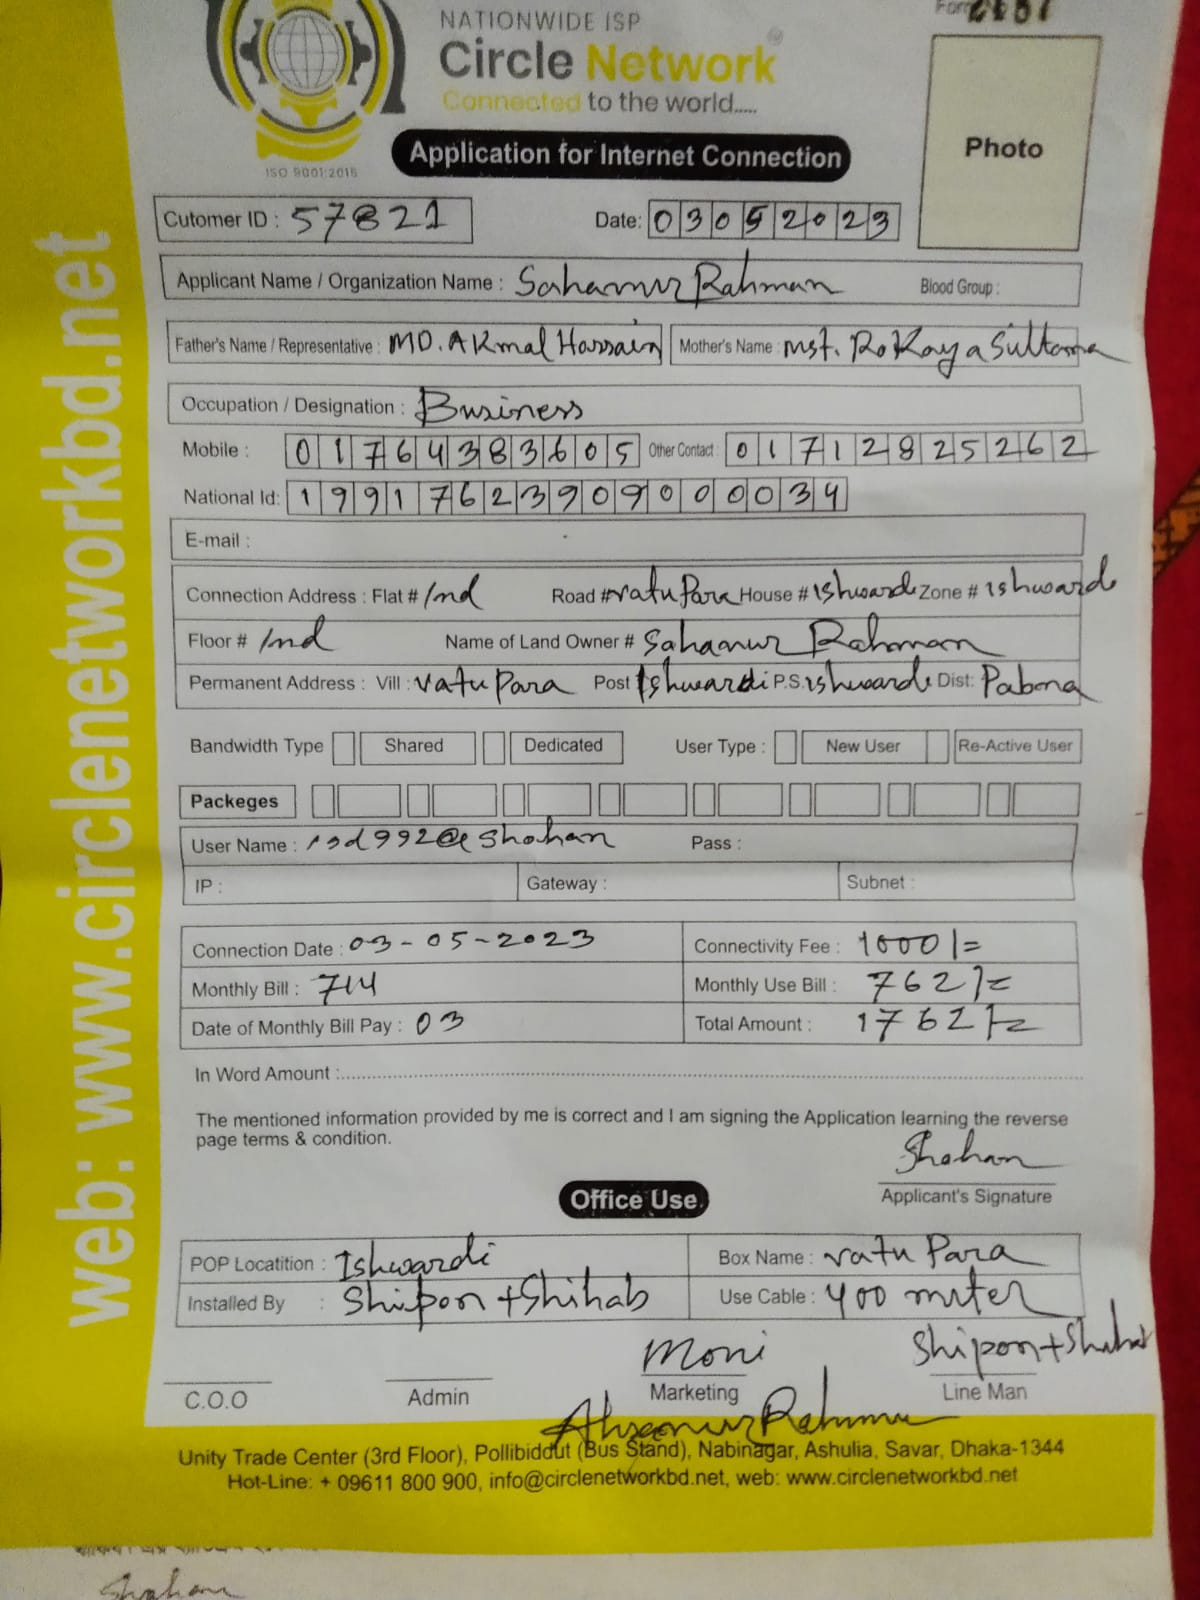 NATIONWIDE ISP
Circle Network
Connected to the world.....
ISO 9001:2015
Application for Internet Connection
Photo
Cutomer ID : 57821 Date: 03052023
Applicant Name / Organization Name : Sahanur Rahman Blood Group :
Father's Name / Representative : MD. AKmal Hossain Mother's Name : Mst. RoKaya Sultana
Occupation / Designation : Business
Mobile : 01764383605 Other Contact : 01712825262
National Id: 19917623909000034
E-mail :
Connection Address : Flat # 1nd Road # vatu Para House # Ishwardi Zone # Ishwardi
Floor # 1nd Name of Land Owner # Sahaanur Rahman
Permanent Address : Vill : vatu Para Post Ishwardi P.S. Ishwardi Dist: Pabna
Bandwidth Type Shared Dedicated User Type : New User Re-Active User
Packeges
User Name : isd992@shohan Pass :
IP : Gateway : Subnet :
Connection Date : 03-05-2023 Connectivity Fee : 1000/=
Monthly Bill : 714 Monthly Use Bill : 762/=
Date of Monthly Bill Pay : 03 Total Amount : 1762/=
In Word Amount :
The mentioned information provided by me is correct and I am signing the Application learning the reverse
page terms & condition.
Shohan
Applicant's Signature
Office Use
POP Locatition : Ishwardi Box Name : vatu Para
Installed By : Shipon + Shihab Use Cable : 400 miter
Moni Shipon + Shihab
C.O.O Admin Marketing Line Man
Ahsanur Rahman
Unity Trade Center (3rd Floor), Pollibiddut (Bus Stand), Nabinagar, Ashulia, Savar, Dhaka-1344
Hot-Line: + 09611 800 900, info@circlenetworkbd.net, web: www.circlenetworkbd.net
web: www.circlenetworkbd.net
Shohan